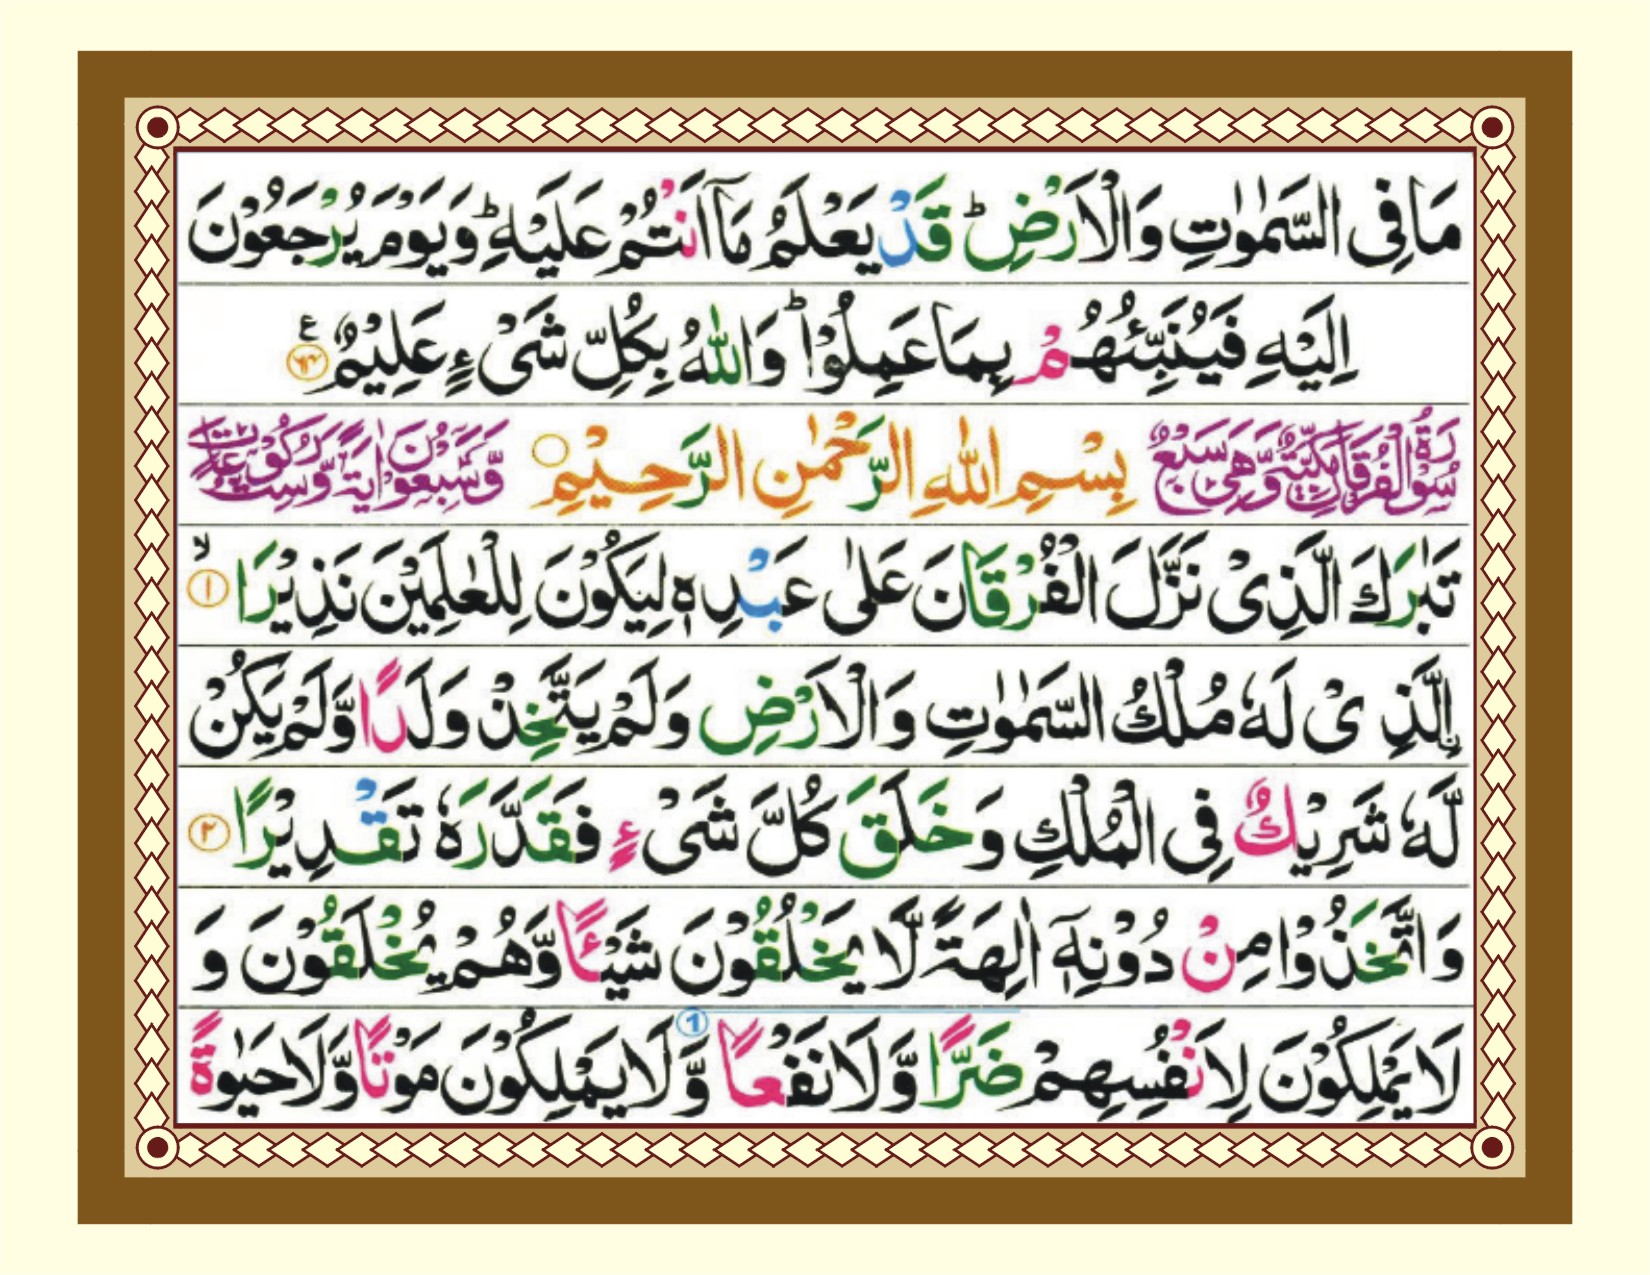 مَا فِی السَّمٰوٰتِ وَالْاَرْضِ ؕ قَدْ یَعْلَمُ مَاۤ اَنْتُمْ عَلَیْهِ ؕ وَیَوْمَ یُرْجَعُوْنَ
اِلَیْهِ فَیُنَبِّئُهُمْ بِمَا عَمِلُوْا ؕ وَاللّٰهُ بِكُلِّ شَیْءٍ عَلِیْمٌ ﴿۶۴﴾ ع
سُوْرَةُ الْفُرْقَانِ مَكِّیَّةٌ وَّهِیَ سَبْعٌ بِسْمِ اللّٰهِ الرَّحْمٰنِ الرَّحِیْمِ وَّسَبْعُوْنَ اٰیَةً وَّسِتُّ رُكُوْعَاتٍ
تَبٰرَكَ الَّذِیْ نَزَّلَ الْفُرْقَانَ عَلٰی عَبْدِهٖ لِیَكُوْنَ لِلْعٰلَمِیْنَ نَذِیْرًا ﴿۱﴾ ۙ
اِ۟لَّذِیْ لَهٗ مُلْكُ السَّمٰوٰتِ وَالْاَرْضِ وَلَمْ یَتَّخِذْ وَلَدًا وَّلَمْ یَكُنْ
لَّهٗ شَرِیْكٌ فِی الْمُلْكِ وَخَلَقَ كُلَّ شَیْءٍ فَقَدَّرَهٗ تَقْدِیْرًا ﴿۲﴾
وَاتَّخَذُوْا مِنْ دُوْنِهٖۤ اٰلِهَةً لَّا یَخْلُقُوْنَ شَیْـًٔا وَّهُمْ یُخْلَقُوْنَ وَ
لَا یَمْلِكُوْنَ لِاَنْفُسِهِمْ ضَرًّا وَّلَا نَفْعًا 1 وَّلَا یَمْلِكُوْنَ مَوْتًا وَّلَا حَیٰوةً